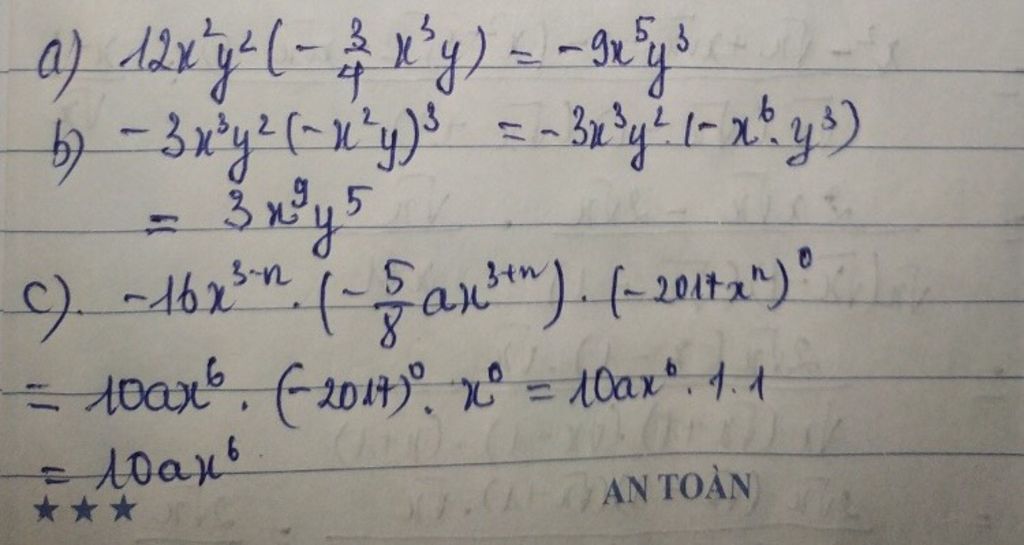 a) 12x²y²(-3/4 x³y) = -9x⁵y³
b) -3x³y²(-x²y)³ = -3x³y².(-x⁶.y³)
= 3x⁹y⁵
c). -16x³⁻ⁿ.(-5/8 ax³⁺ⁿ).(-2017xⁿ)⁰
= 10ax⁶.(-2017)⁰.x⁰ = 10ax⁶.1.1
= 10ax⁶
★★★ AN TOÀN